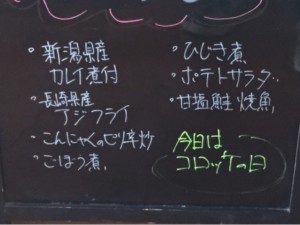 ・新潟県産
カレイ煮付
・長崎県産
アジフライ
・こんにゃくのピリ辛炒
・ごぼう煮
・ひじき煮
・ポテトサラダ
・甘塩鮭 焼魚
今日は
コロッケの日